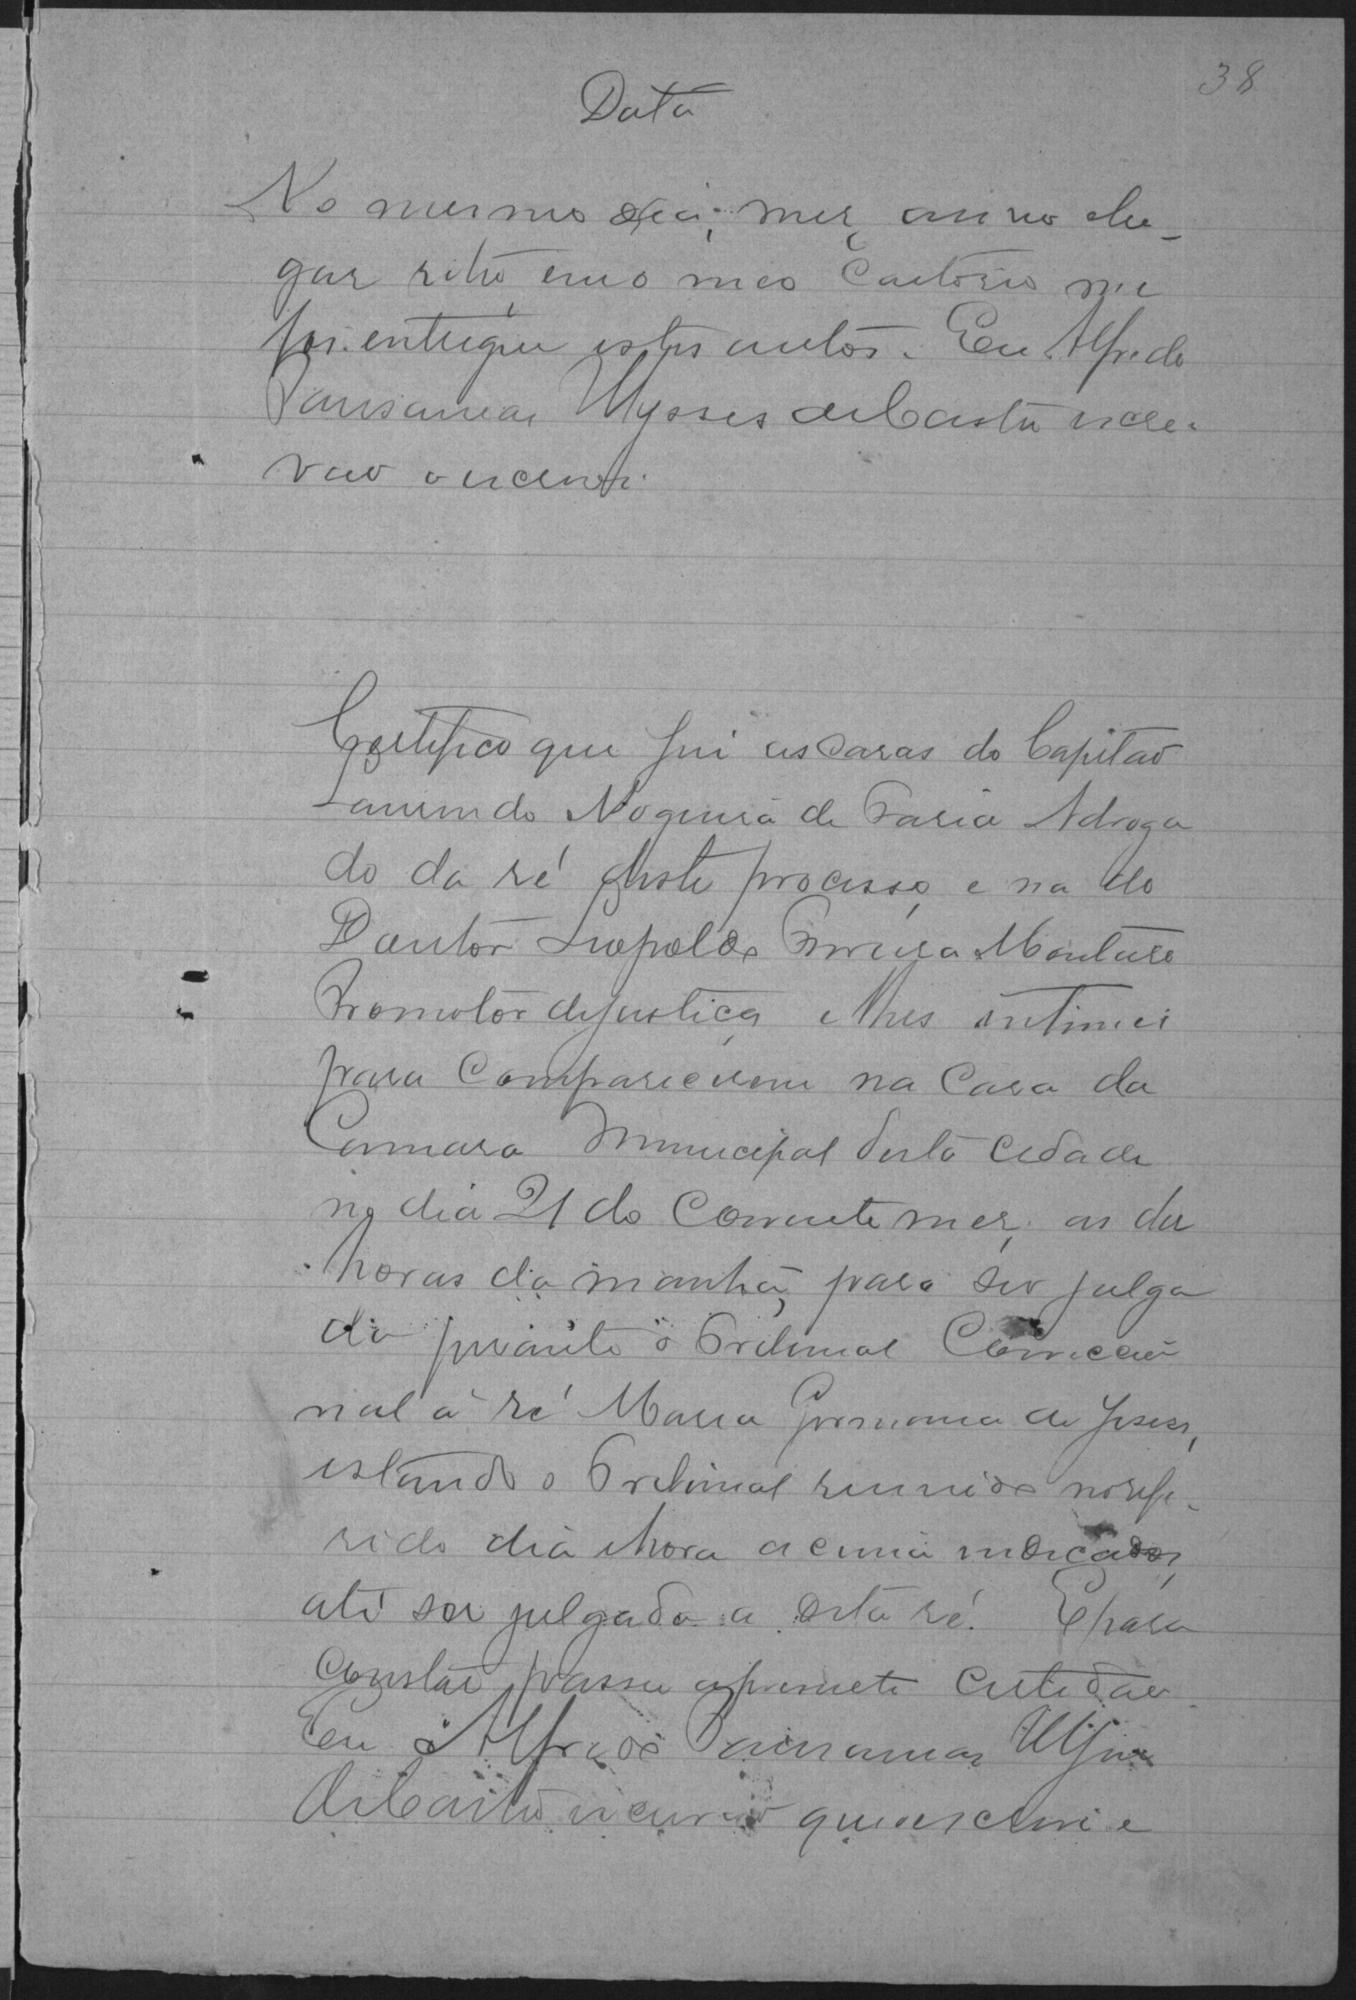 38
Data
No mesmo dia, mez, anno e lu-
gar retro em o meo Cartorio me
foi entregue estes autos. Eu Alfredo
Pausanias Ulysses de Castro escri-
vao o escrevi.
Certifico que fui as casas do Capitão
Laurindo Nogueira de Faria Adroga
do da ré deste processo, e na do
Doutor Leopoldo Ferreira Monteiro
Promotor de Justiça, e lhes intimei
para comparecerem na Casa da
Camara Municipal desta cidade
no dia 21 do corrente mez, as dez
horas da manhã, para ser julga
da perante o Tribunal Correccio
nal a ré Maria Germana de Jesus,
estando o Tribunal reunido no refe-
rido dia e hora acima indicados,
até ser julgada a dita ré. E para
constar passei a presente certidão.
Eu Alfredo Pausanias Ulysses
de Castro escrivão que escrevi e